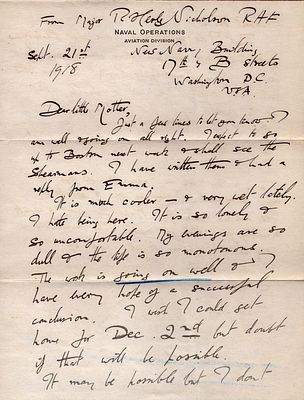 From Major R Hesly Nicholson RAF
NAVAL OPERATIONS
AVIATION DIVISION
Sept. 21st
1918
New Navy Building
17th & B Streets
Washington D.C.
USA.
Dear little Mother,
Just a few lines to let you know I
am well & going on all right. I expect to go
up to Boston next week & shall see the
Shearmans. I have written them & had a
reply from Emma.
It is much cooler — & very wet lately.
I hate being here. It is so lonely &
so uncomfortable. My evenings are so
dull & the life is so monotonous.
The work is going on well & I
have every hope of a successful
conclusion. I wish I could get
home for Dec. 2nd but doubt
if that will be possible.
It may be possible but I don't